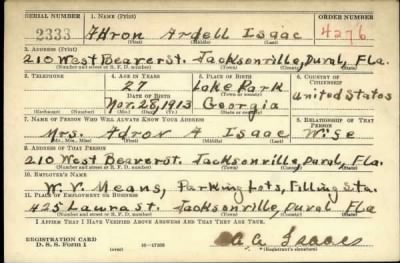 SERIAL NUMBER 1. NAME (Print) ORDER NUMBER
2333 Adron Ardell Isaac 4276
(First) (Middle) (Last)
2. ADDRESS (Print)
210 West Beaver st. Jacksonville, Duval, Fla.
(Number and street or R. F. D. number) (Town) (County) (State)
3. TELEPHONE 4. AGE IN YEARS 5. PLACE OF BIRTH 6. COUNTRY OF CITIZENSHIP
27 Lake Park
DATE OF BIRTH (Town or county) United States
Nov. 28, 1913 Georgia
(Exchange) (Number) (Mo.) (Day) (Yr.) (State or country)
7. NAME OF PERSON WHO WILL ALWAYS KNOW YOUR ADDRESS 8. RELATIONSHIP OF THAT PERSON
Mrs. Adron A Isaac Wife
(Mr., Mrs., Miss) (First) (Middle) (Last)
9. ADDRESS OF THAT PERSON
210 West Beaver st. Jacksonville, Duval, Fla.
(Number and street or R. F. D. number) (Town) (County) (State)
10. EMPLOYER'S NAME
W. V. Means, Parking Lots, Filling Sta.
11. PLACE OF EMPLOYMENT OR BUSINESS
425 Laura st. Jacksonville, Duval Fla
(Number and street or R. F. D. number) (Town) (County) (State)
I AFFIRM THAT I HAVE VERIFIED ABOVE ANSWERS AND THAT THEY ARE TRUE.
REGISTRATION CARD
D. S. S. FORM 1 (over) 16—17105 A A Isaac
(Registrant's signature)